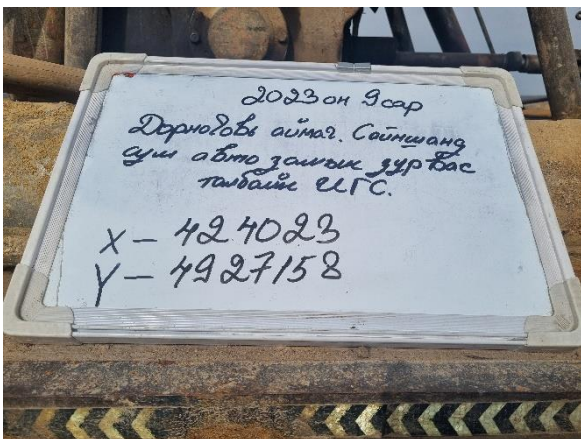 2023 он 9 сар
Дорноговь аймаг. Сайншанд
сум авто замын зурвас
талбайн ИГС.
X – 424023
Y – 4927158